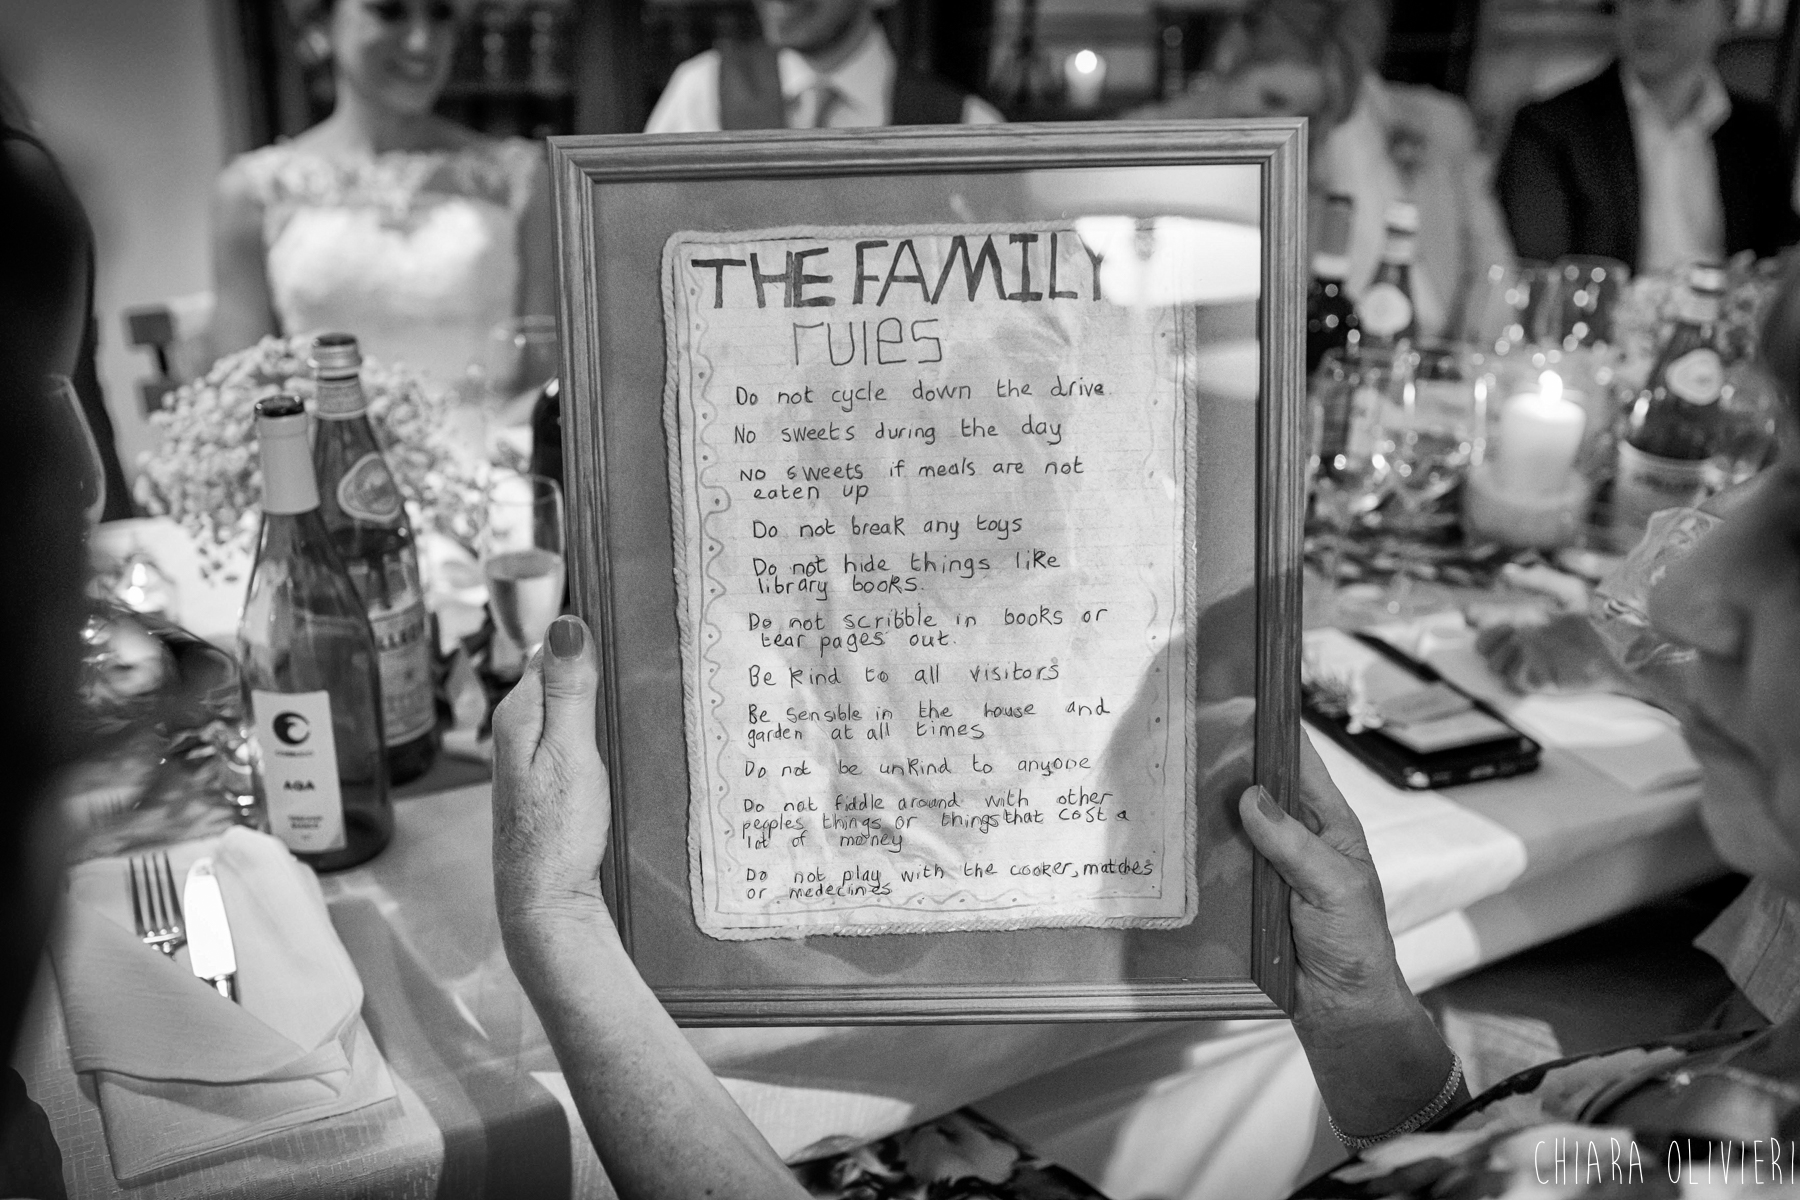 THE FAMILY
rules
Do not cycle down the drive.
No sweets during the day
No sweets if meals are not
eaten up
Do not break any toys
Do not hide things like
library books.
Do not scribble in books or
tear pages out.
Be kind to all visitors
Be sensible in the house and
garden at all times
Do not be unkind to anyone
Do not fiddle around with other
peoples things or things that cost a
lot of money
Do not play with the cooker, matches
or medecines
AGA
CHIARA OLIVIERI